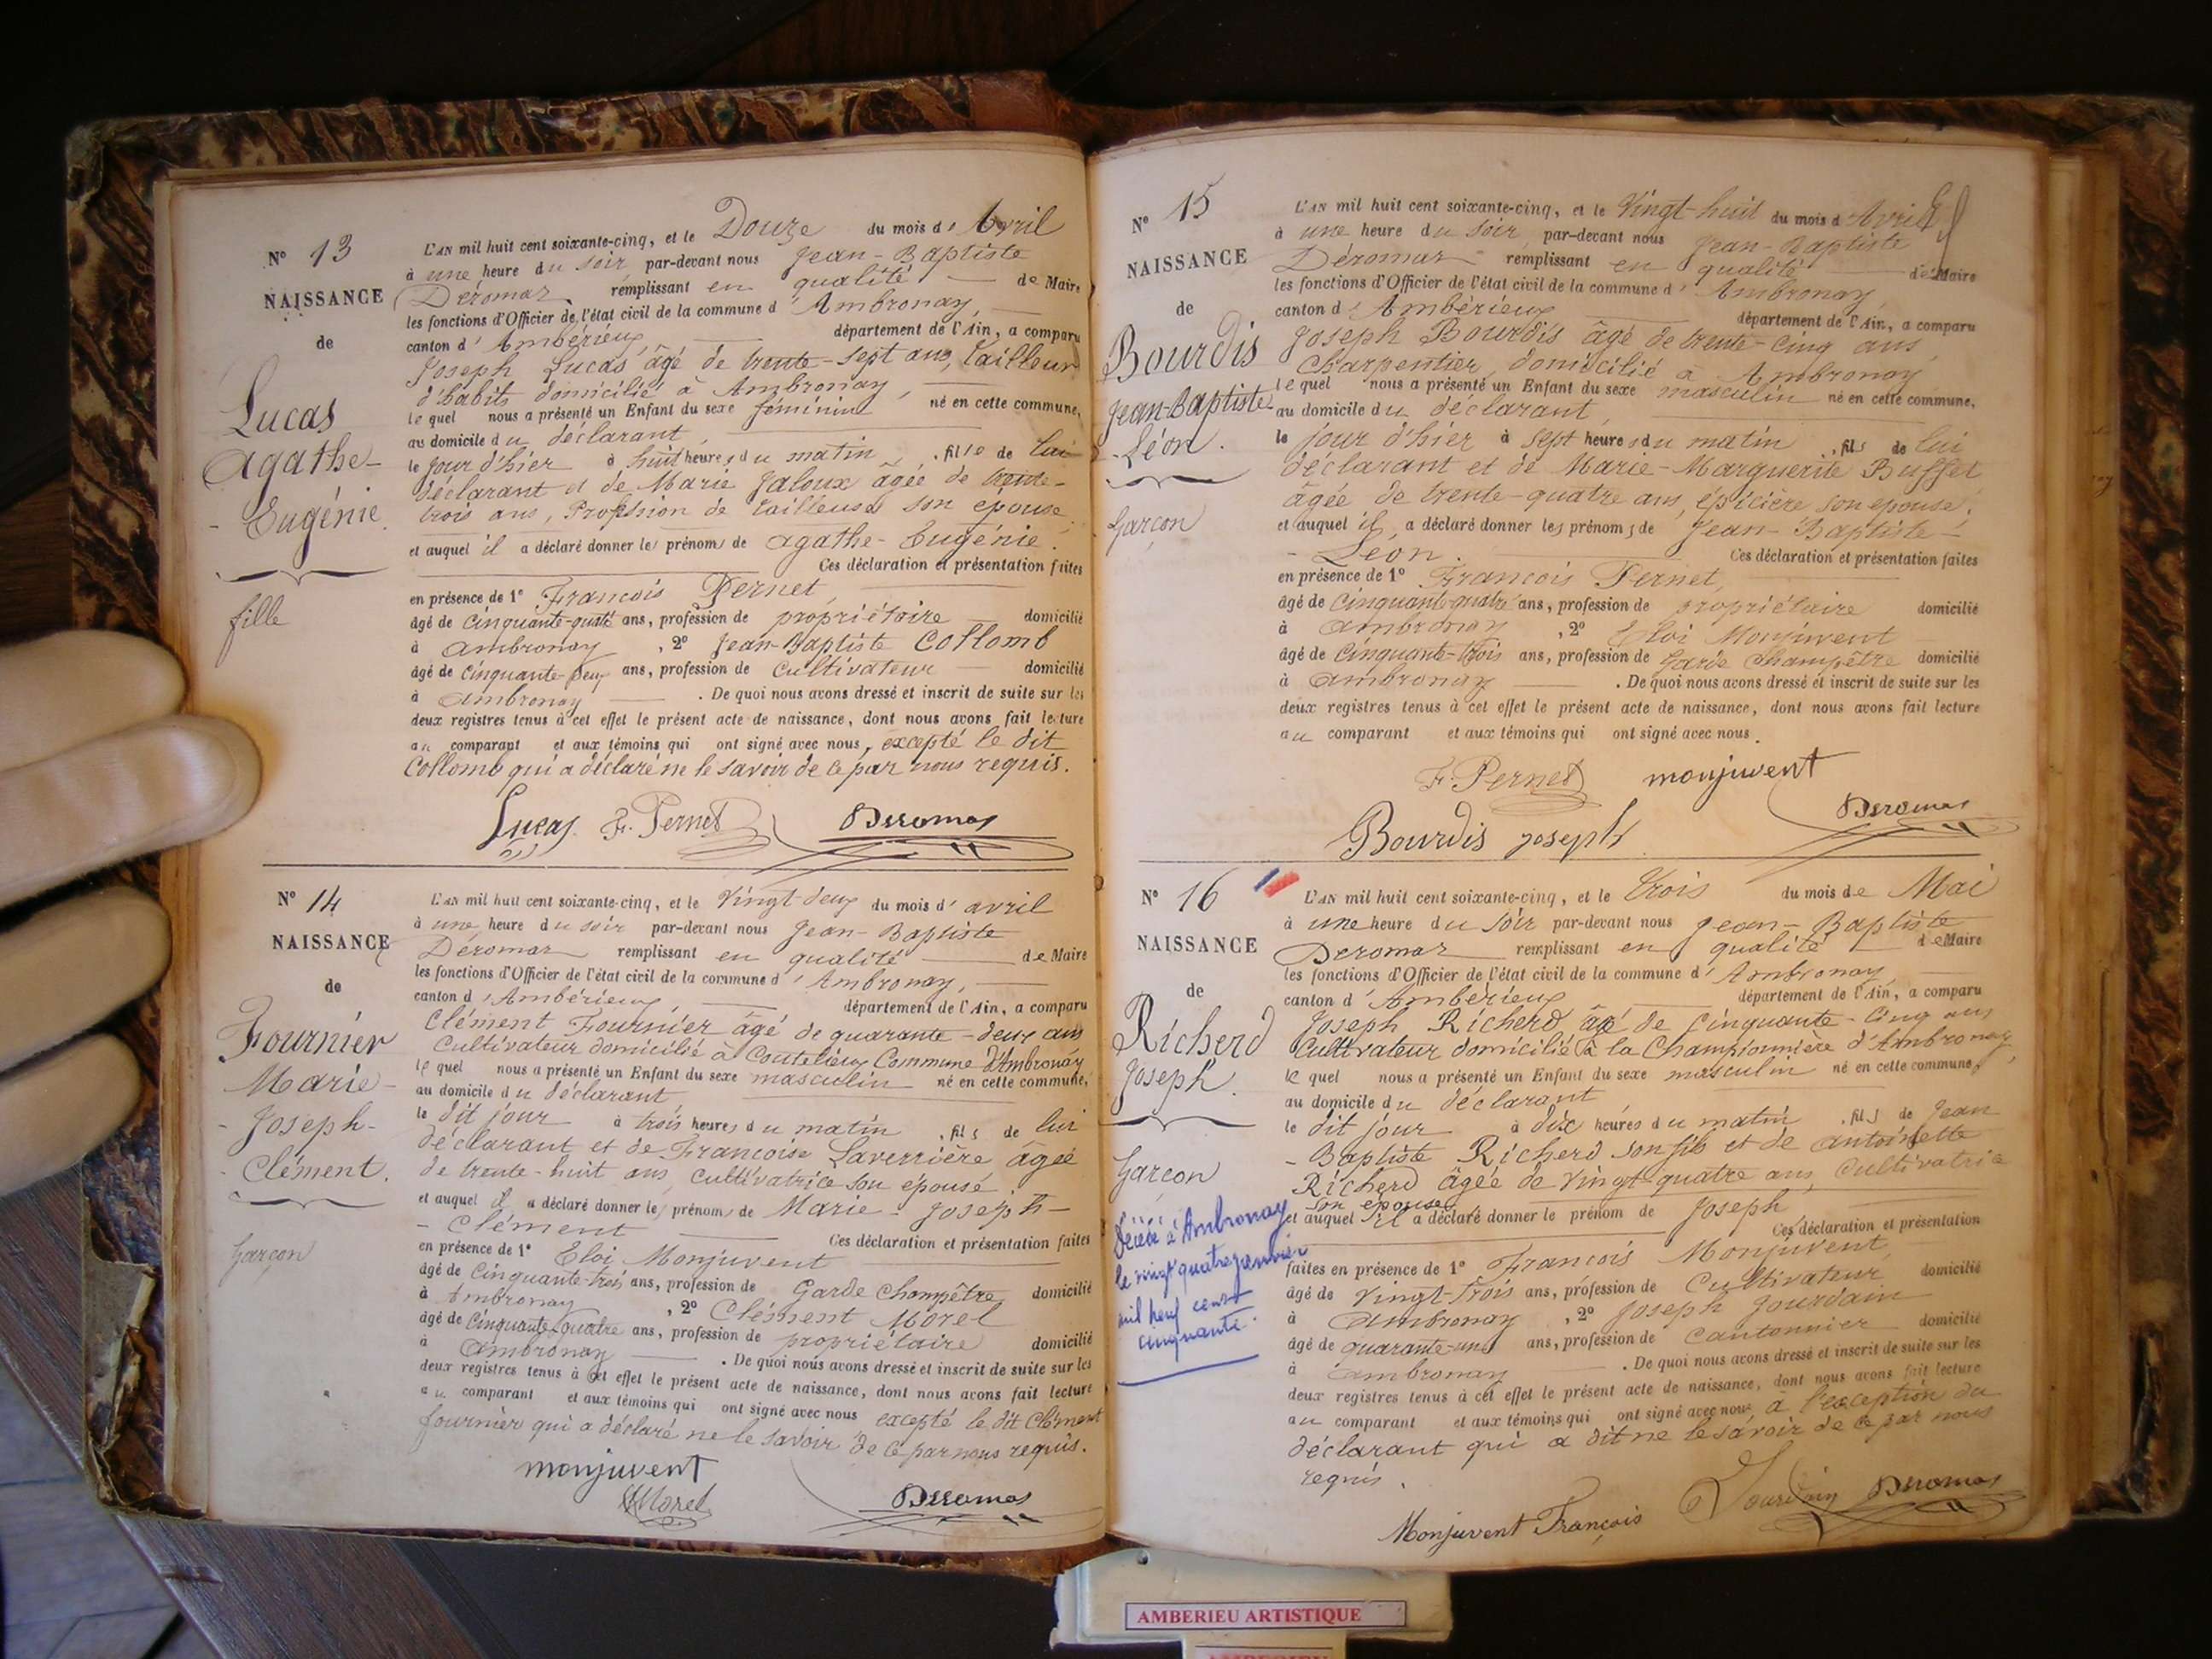 N° 13
NAISSANCE
de
Lucas
Agathe-
- Eugénie.
fille
L'AN mil huit cent soixante-cinq, et le Douze du mois d' Avril
à une heure du soir par-devant nous Jean-Baptiste
Déromas remplissant en qualité de Maire
les fonctions d'Officier de l'état civil de la commune d' Ambronay,
canton d' Ambérieux, département de l'Ain, a comparu
Joseph Lucas âgé de trente-sept ans, tailleur
d'habits domicilié à Ambronay,
lequel nous a présenté un Enfant du sexe féminin né en cette commune,
au domicile du déclarant,
le jour d'hier à huit heures du matin, fille de lui
déclarant et de Marie Jaloux âgée de trente-
trois ans, Profession de tailleuse son épouse
et auquel il a déclaré donner les prénoms de Agathe-Eugénie.
Ces déclaration et présentation faites
en présence de 1° François Pernet
âgé de cinquante-quatre ans, profession de propriétaire domicilié
à Ambronay, 2° Jean-Baptiste Collomb
âgé de cinquante-deux ans, profession de cultivateur domicilié
à Ambronay. De quoi nous avons dressé et inscrit de suite sur les
deux registres tenus à cet effet le présent acte de naissance, dont nous avons fait lecture
au comparant et aux témoins qui ont signé avec nous, excepté le dit
Collomb qui a déclaré ne le savoir de ce par nous requis.
Lucas F. Pernet Deromas
N° 14
NAISSANCE
de
Fournier
Marie-
- Joseph-
- Clément.
Garçon
L'AN mil huit cent soixante-cinq, et le Vingt-deux du mois d' avril
à une heure du soir par-devant nous Jean-Baptiste
Déromas remplissant en qualité de Maire
les fonctions d'Officier de l'état civil de la commune d' Ambronay,
canton d' Ambérieux, département de l'Ain, a comparu
Clément Fournier âgé de quarante-deux ans
cultivateur domicilié à Coutelieux Commune d'Ambronay
lequel nous a présenté un Enfant du sexe masculin né en cette commune,
au domicile du déclarant
le dit jour à trois heures du matin, fils de lui
déclarant et de Françoise Laverrière âgée
de trente-huit ans, cultivatrice son épouse
et auquel il a déclaré donner les prénoms de Marie-Joseph-
- Clément Ces déclaration et présentation faites
en présence de 1° Eloi Monjuvent
âgé de cinquante-trois ans, profession de Garde Champêtre domicilié
à Ambronay, 2° Clément Morel
âgé de cinquante-quatre ans, profession de propriétaire domicilié
à Ambronay. De quoi nous avons dressé et inscrit de suite sur les
deux registres tenus à cet effet le présent acte de naissance, dont nous avons fait lecture
au comparant et aux témoins qui ont signé avec nous excepté le dit Clément
fournier qui a déclaré ne le savoir de ce par nous requis.
monjuvent
Morel Deromas
N° 15
NAISSANCE
de
Bourdis
Jean-Baptiste-
-Léon.
Garçon
L'AN mil huit cent soixante-cinq, et le Vingt-huit du mois d' Avril
à une heure du soir, par-devant nous Jean-Baptiste
Déromas remplissant en qualité de Maire
les fonctions d'Officier de l'état civil de la commune d' Ambronay,
canton d' Ambérieux département de l'Ain, a comparu
Joseph Bourdis âgé de trente-cinq ans,
Charpentier, domicilié à Ambronay
lequel nous a présenté un Enfant du sexe masculin né en cette commune,
au domicile du déclarant,
le jour d'hier à sept heures du matin, fils de lui
déclarant et de Marie-Marguerite Buffet
âgée de trente-quatre ans, épicière son epouse.
et auquel il a déclaré donner les prénoms de Jean-Baptiste-
- Léon. Ces déclaration et présentation faites
en présence de 1° François Pernet,
âgé de cinquante-quatre ans, profession de propriétaire domicilié
à Ambronay, 2° Eloi Monjuvent
âgé de cinquante-trois ans, profession de Garde Champêtre domicilié
à Ambronay. De quoi nous avons dressé et inscrit de suite sur les
deux registres tenus à cet effet le présent acte de naissance, dont nous avons fait lecture
au comparant et aux témoins qui ont signé avec nous.
F. Pernet monjuvent
Deromas
Bourdis joseph
N° 16
NAISSANCE
de
Richerd
Joseph.
Garçon
Décédé à Ambronay
le vingt quatre janvier
mil neuf cent
cinquante.
L'AN mil huit cent soixante-cinq, et le trois du mois de Mai
à une heure du soir par-devant nous Jean-Baptiste
Deromas remplissant en qualité de Maire
les fonctions d'Officier de l'état civil de la commune d' Ambronay,
canton d' Ambérieux département de l'Ain, a comparu
Joseph Richerd âgé de cinquante-cinq ans
Cultivateur domicilié à la Championnière d'Ambronay,
lequel nous a présenté un Enfant du sexe masculin né en cette commune,
au domicile du déclarant
le dit jour à dix heures du matin, fils de Jean
- Baptiste Richerd son fils et de antoinette
Richerd âgée de vingt-quatre ans, cultivatrice
son épouse
et auquel il a déclaré donner le prénom de Joseph
Ces déclaration et présentation
faites en présence de 1° François Monjuvent
âgé de Vingt-trois ans, profession de Cultivateur domicilié
à Ambronay, 2° Joseph Jourdain
âgé de quarante-un ans, profession de Cantonnier domicilié
à Ambronay. De quoi nous avons dressé et inscrit de suite sur les
deux registres tenus à cet effet le présent acte de naissance, dont nous avons fait lecture
au comparant et aux témoins qui ont signé avec nous à l'exception du
déclarant qui a dit ne le savoir de ce par nous
requis.
Monjuvent François Jourdain Deromas
AMBERIEU ARTISTIQUE